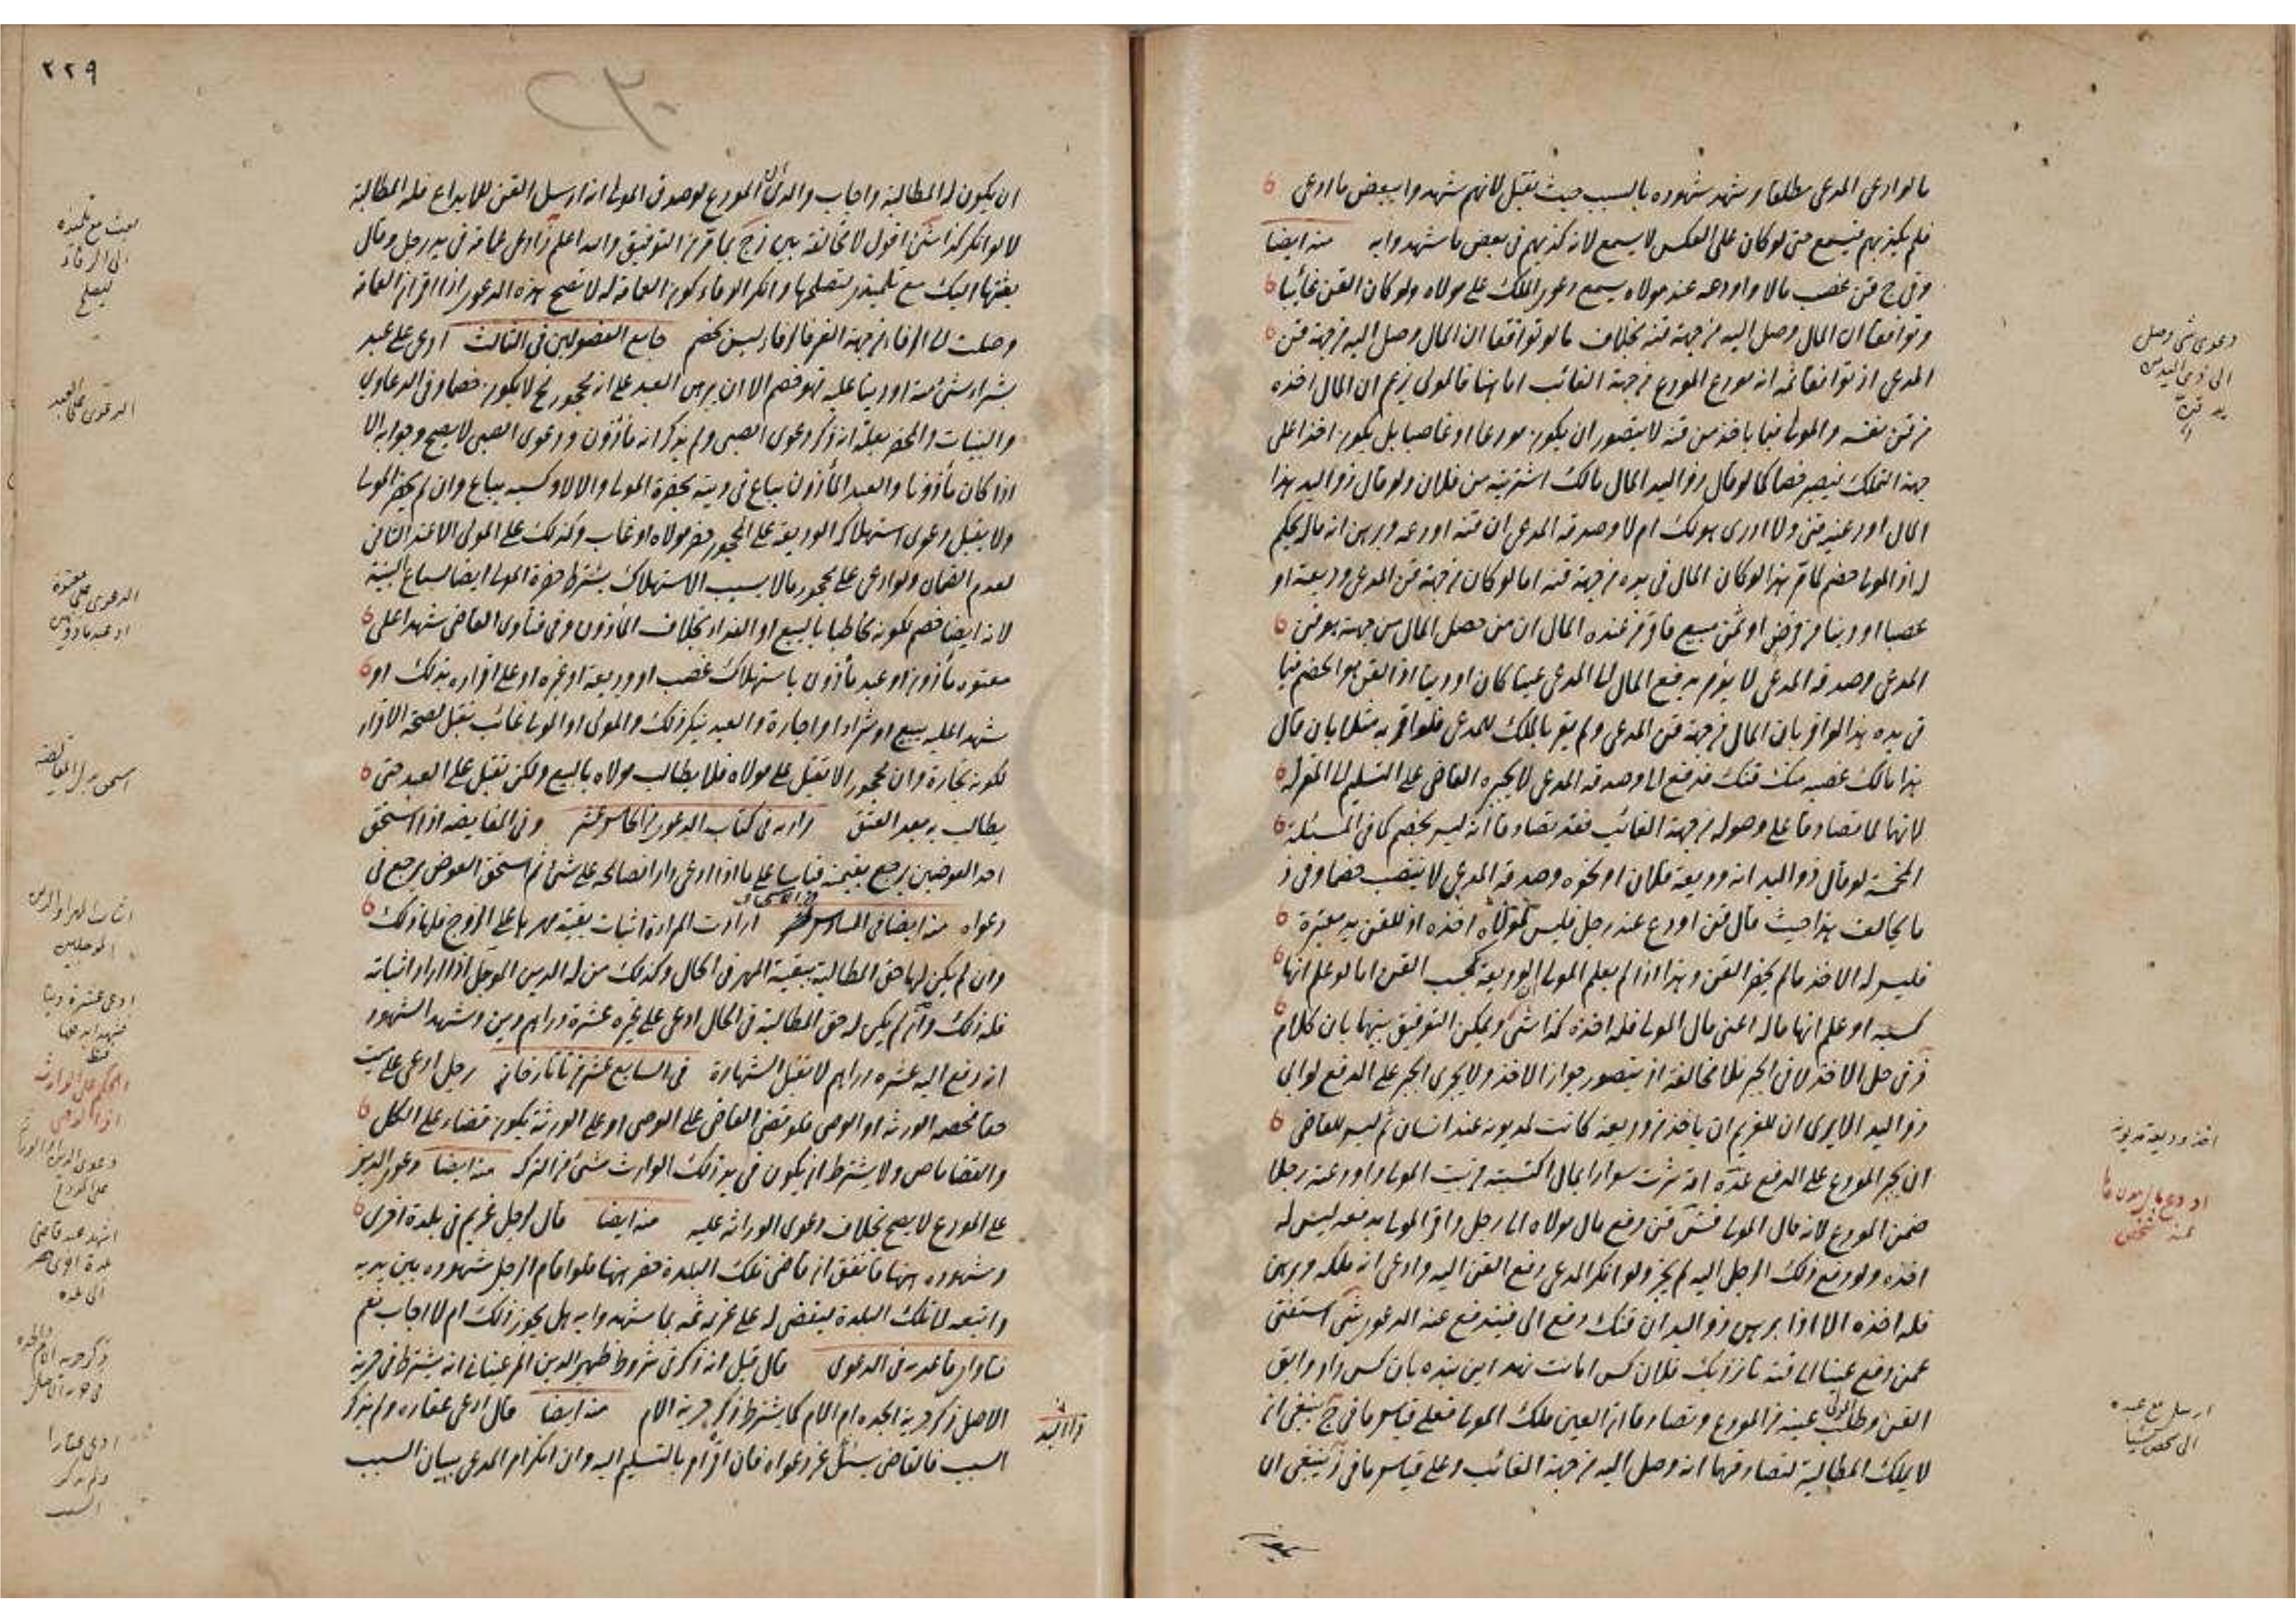 ما لو ادعى المدعى مطلقا وشهد شهوده بالسبب حيث تقبل لانهم شهدوا ببعض ما ادعى
فلم يكذبهم فيسمع حتى لو كان على العكس لا يسمع لانه كذبهم فى بعض ما شهدوا به منه ايضا
وفى ج قن غصب مالا واودعه عند مولاه يسمع دعوى الملك على مولاه ولو كان القن غائبا
وتوافقا ان المال وصل اليه من جهة قنه بخلاف ما لو توافقا ان المال وصل اليه من جهة قن
المدعى اذ توافقا ثمه انه مودع المودع من جهة الغائب اما هنا فالمولى يزعم ان المال اخذه
من قن نفسه والمولى فيما ياخذ من قنه لا يتصور ان يكون مودعا او غاصبا بل يكون اخذا على
جهة التملك فيصير خصما كما لو قال ذو اليد المال مالك اشتريته من فلان ولو قال ذو اليد هذا
المال اودعنيه قنى ولا ادرى هو لك ام لا وصدقه المدعى ان قنه اودعه وبرهن انه ماله يحكم
له اذ المولى خصم كما مر هذا لو كان المال فى يده من جهة قنه اما لو كان من جهة قن المدعى وديعة او
غصبا او دينا من قرض او ثمن مبيع فاقر من عنده المال ان من حصل المال من جهته هو قن
المدعى وصدقه المدعى لا يؤمر بدفع المال الى المدعى عينا كان او دينا اذ القن هو الخصم فيما
فى يده هذا لو اقر بان المال من جهة قن المدعى ولم يقر بالملك للمدعى فلو اقر به مثلا بان قال
هذا مالك غصبه منك قنك فدفع الى وصدقه المدعى لا يجبره القاضى على التسليم الى المقر له
لانهما لما تصادقا على وصوله من جهة الغائب فقد تصادقا انه ليس بخصم كما فى المسئلة
المخمسة لو قال ذو اليد انه وديعة فلان او نحوه وصدقه المدعى لا ينتصب خصما وفى ذ
ما يخالف هذا حيث قال قن اودع عند رجل فليس لمولاه اخذه اذ للقن يد معتبرة
فليس له الاخذ ما لم يحضر القن وهذا اذا لم يعلم المولى ان الوديعة كسب القن اما لو علم انها
كسبه او علم انها ماله اعنى مال المولى فله اخذه كذا شى ويمكن التوفيق بينهما بان كلام
ذ فى حل الاخذ لا فى الجبر فلا مخالفة اذ يتصور جواز الاخذ ولا يجرى الجبر على الدفع لو ابى
ذو اليد الا يرى ان للغريم ان ياخذ من وديعة كانت لمديونه عند انسان ثم ليس للقاضى
ان يجبر المودع على الدفع عده امة شرت سوارا بمال اكتسبته من بيت المولى واودعته رجلا
ضمن المودع لانه مال المولى فش قن دفع مال مولاه الى رجل واقر المولى بدفعه ليس له
اخذه ولو دفع ذلك الرجل اليه لم يجز ولو انكر المدعى دفع القن اليه وادعى انه ملكه وبرهن
فله اخذه الا اذا برهن ذو اليد ان قنك دفع الى فيندفع عنه الدعوى شى استفتى
عمن دفع عينا الى قنه تا نزديك فلان كس امانت نهد اين بنده بان كس داد وابق
القن وطلب المولى عينه من المودع وتصادقا ان العين ملك المولى فعلى قياس ما فى ج ينبغى ان
لا يملك المطالبة لتصادقهما انه وصل اليه من جهة الغائب وعلى قياس ما فى ذ ينبغى ان
دعوى شى وصل
الى ذى اليد من
يد قنه
اخذ وديعة مديونه
اودع مال مديون ما
عند شخص
ارسل مع عبده
الى شخص شيئا
٢٢٩
ان يكون له المطالبة واجاب والدى ان المودع لو صدق المولى انه ارسل القن للايداع فله المطالبة
لا لو انكر كذا شى اقول لا مخالفة بين ذ ج كما مر من التوفيق والله اعلم ذ ادعى عمامة فى يد رجل وقال
بعثتها اليك مع تلميذى لتصلحها وانكر الرفاء كون العمامة له لا تصح هذه الدعوى اذا اقر ان العمامة
وصلت الى الرفاء من جهة الغير فالرفاء ليس بخصم جامع الفصولين فى الثالث ادعى على عبد
بشراء شئ منه او دينا عليه فهو خصم الا ان يبرهن العبد على انه محجور فح لا يكون خصما وفى الدعاوى
والبينات والمحضر بعلة انه ذكر دعوى الصبى ولم يذكر انه مأذون ودعوى الصبى لا يصح وجوابه الا
اذا كان مأذونا والعبد المأذون يباع فى دينه بحضرة المولى والا لا وكسبه يباع وان لم يحضر المولى
ولا يقبل دعوى استهلاك الوديعة على المحجور حضر مولاه او غاب وكذلك على المولى الا عند الثانى
لعدم الضمان ولو ادعى على محجور مالا بسبب الاستهلاك يشترط حضرة المولى ايضا لسماع البينة
لانه ايضا خصم لكونه مخاطبا بالبيع او الفداء بخلاف المأذون وفى فتاوى القاضى شهدا على
معتوه مأذون او عبد مأذون باستهلاك غصب او وديعة او غيره او على اقراره بذلك او
شهدا عليه ببيع او شراء او اجارة والعبد ينكر ذلك والمولى او الولى غائب تقبل لصحة الاقرار
لكونه تجارة وان محجورا لا تقبل على مولاه فلا يطالب مولاه بالبيع ولكن تقبل على العبد حتى
يطالب به بعد العتق بزازيه فى كتاب الدعوى فى الخامس عشر وفى المقايضة اذا استحق
احد العوضين يرجع بقيمته قياسا على ما اذا ادعى دارا فصالحه على شئ ثم استحق العوض يرجع فى
دعواه منه ايضا فى السادس عشر ارادت المراة اثبات بقية مهرها على الزوج فلها ذلك
وان لم يكن لها حق المطالبة ببقية المهر فى الحال وكذلك من له الدين المؤجل اذا اراد اثباته
فله ذلك وان لم يكن له حق المطالبة فى الحال ادعى على غيره عشرة دراهم دين وشهد الشهود
انه دفع اليه عشره دراهم لا تقبل الشهادة فى السابع عشر من تاتارخانيه رجل ادعى على ميت
حقا فخصمه الورثه او الوصى فلو قضى القاضى على الوصى او على الورثة يكون قضاء على الكل
والقضاء ماض ولا يشترط ان يكون فى يد ذلك الوارث شئ من التركه منه ايضا دعوى الدين
على المودع لا يصح بخلاف دعوى الوراثه عليه منه ايضا قال رجل غريم فى بلدة اخرى
وشهوده هنا فاتفق ان قاضى تلك البلدة حضر هنا فلو اقام الرجل شهوده بين يديه
واتبعه الى تلك البلدة ليقضى له على غريمه ثمه بما شهدوا به هل يجوز ذلك ام لا اجاب نعم
فتاوى قاعديه فى الدعوى قال قيل انه ذكر فى شروط ظهير الدين المرغينانى انه يشترط فى حرية
الاصل ذكر حرية الجدة ام الام كما يشترط ذكر حرية الام منه ايضا قال ادعى عقارا ولم يذكر
السبب فالقاضى يسئل عن دعواه فان اقر امر بالتسليم اليه وان انكر امر المدعى ببيان السبب
بعث مع تلميذه
الى الرفاء
ليصلح
الدعوى على العبد
الدعوى على معتوه
او عبد مأذونين
ادعى عشرة دينا
الحكم على الوارث
اشهد عند قاضى
بلدة اخرى
ادعى عقارا
ولم يذكر
السبب